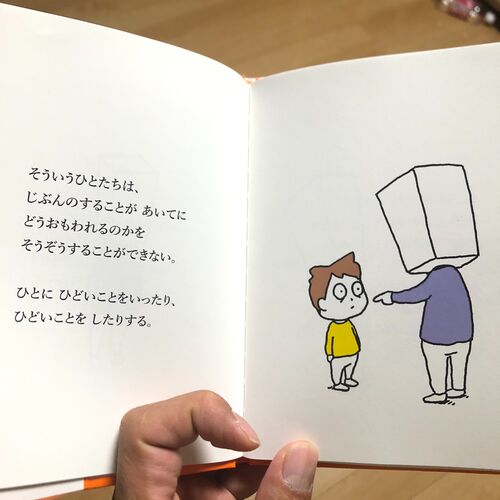 そういうひとたちは、
じぶんのすることが あいてに
どうおもわれるのかを
そうぞうすることができない。
ひとに ひどいことをいったり、
ひどいことを したりする。